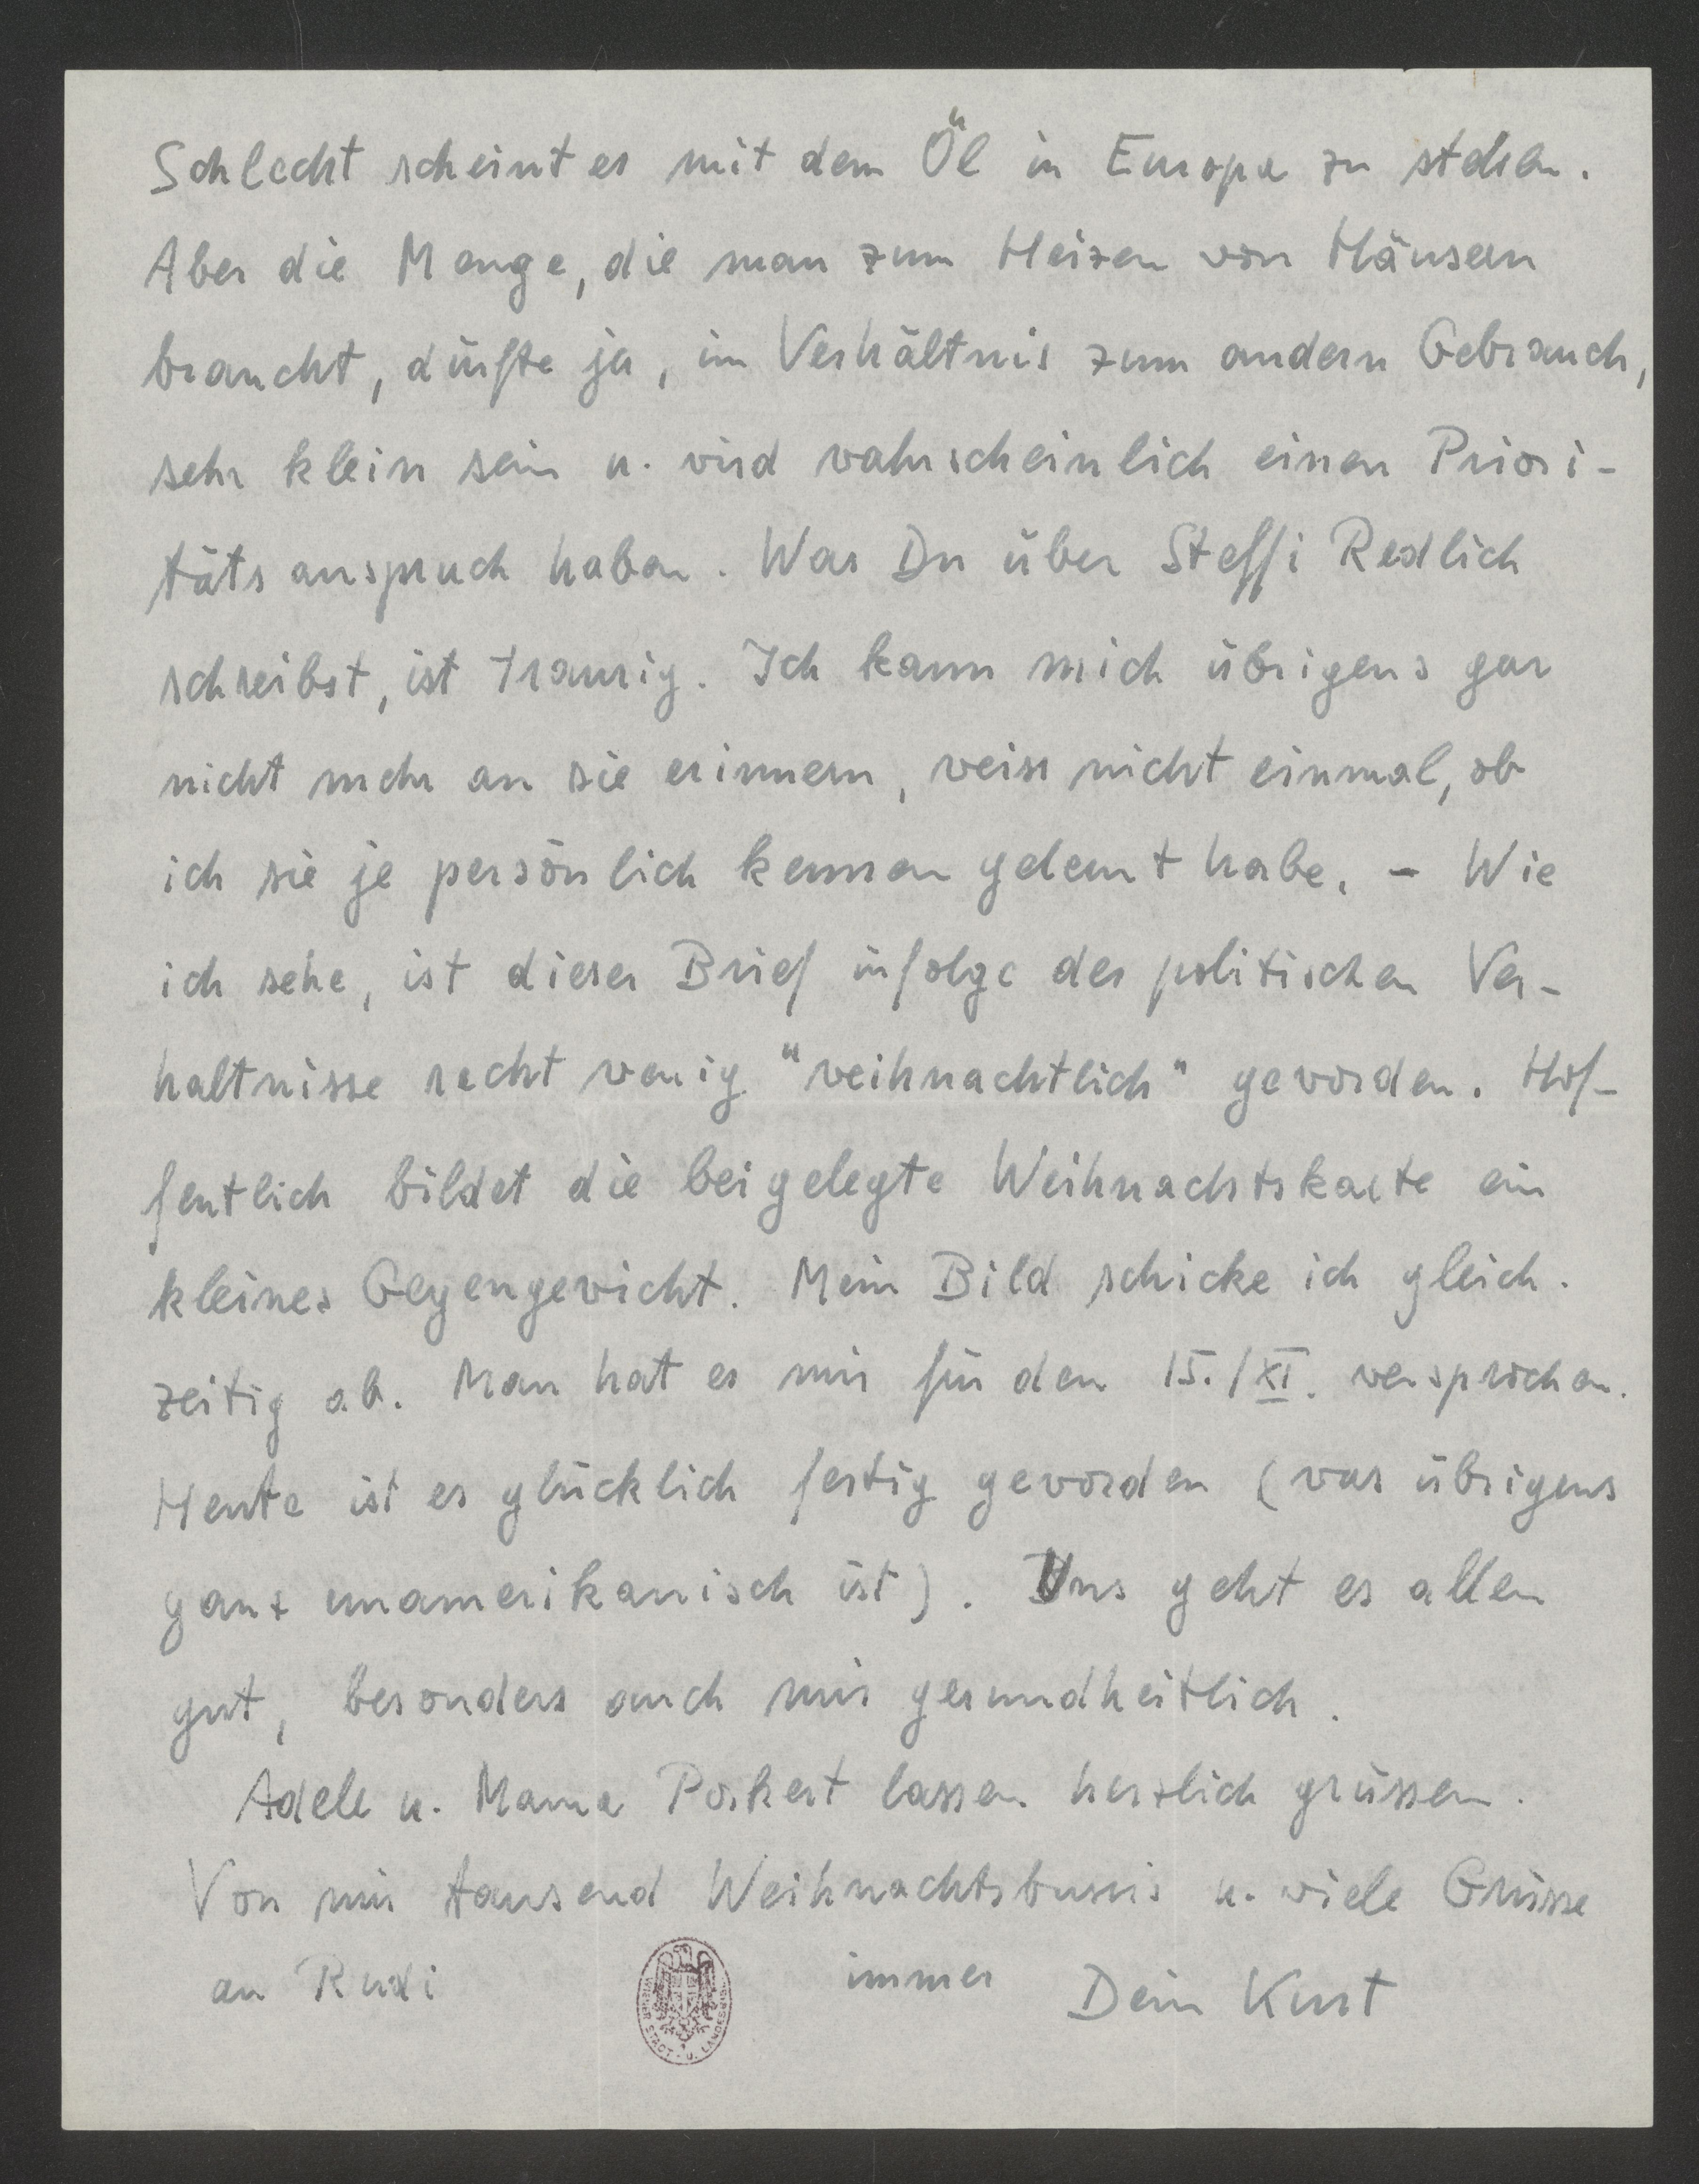 Schlecht scheint es mit dem Öl in Europa zu stehen.
Aber die Menge, die man zum Heizen von Häusern
braucht, dürfte ja, im Verhältnis zum andern Gebrauch,
sehr klein sein u. wird wahrscheinlich einen Priori-
tätsanspruch haben. Was Du über Steffi Redlich
schreibst, ist traurig. Ich kann mich übrigens gar
nicht mehr an sie erinnern, weiss nicht einmal, ob
ich sie je persönlich kennen gelernt habe. – Wie
ich sehe, ist dieser Brief infolge der politischen Ver-
haltnisse recht wenig "weihnachtlich" geworden. Hof-
fentlich bildet die beigelegte Weihnachtskarte ein
kleines Gegengewicht. Mein Bild schicke ich gleich.
zeitig ab. Man hat es mir für den 15./XI. versprochen.
Heute ist es glücklich fertig geworden (was übrigens
ganz unamerikanisch ist). Uns geht es allen
gut, besonders auch mir gesundheitlich.
Adele u. Mama Porkert lassen herzlich grüssen.
Von mir tausend Weihnachtsbussis u. viele Grüsse
an Rudi immer Dein Kurt
WIENER STADT- U. LANDESBIBL.